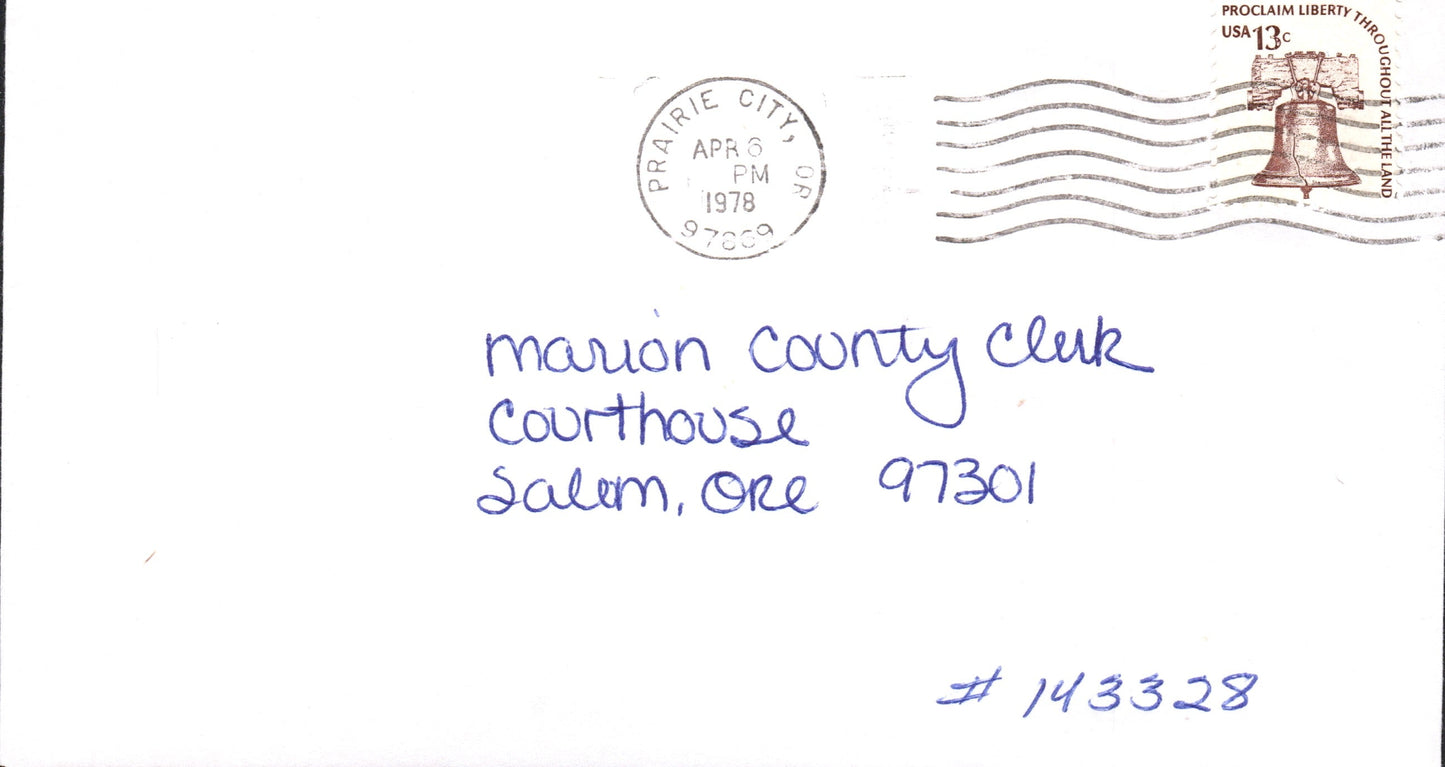 PROCLAIM LIBERTY THROUGHOUT ALL THE LAND
USA 13c
PRAIRIE CITY, OR
APR 6
PM
1978
97869
Marion County Clerk
Courthouse
Salem, Ore 97301
# 143328